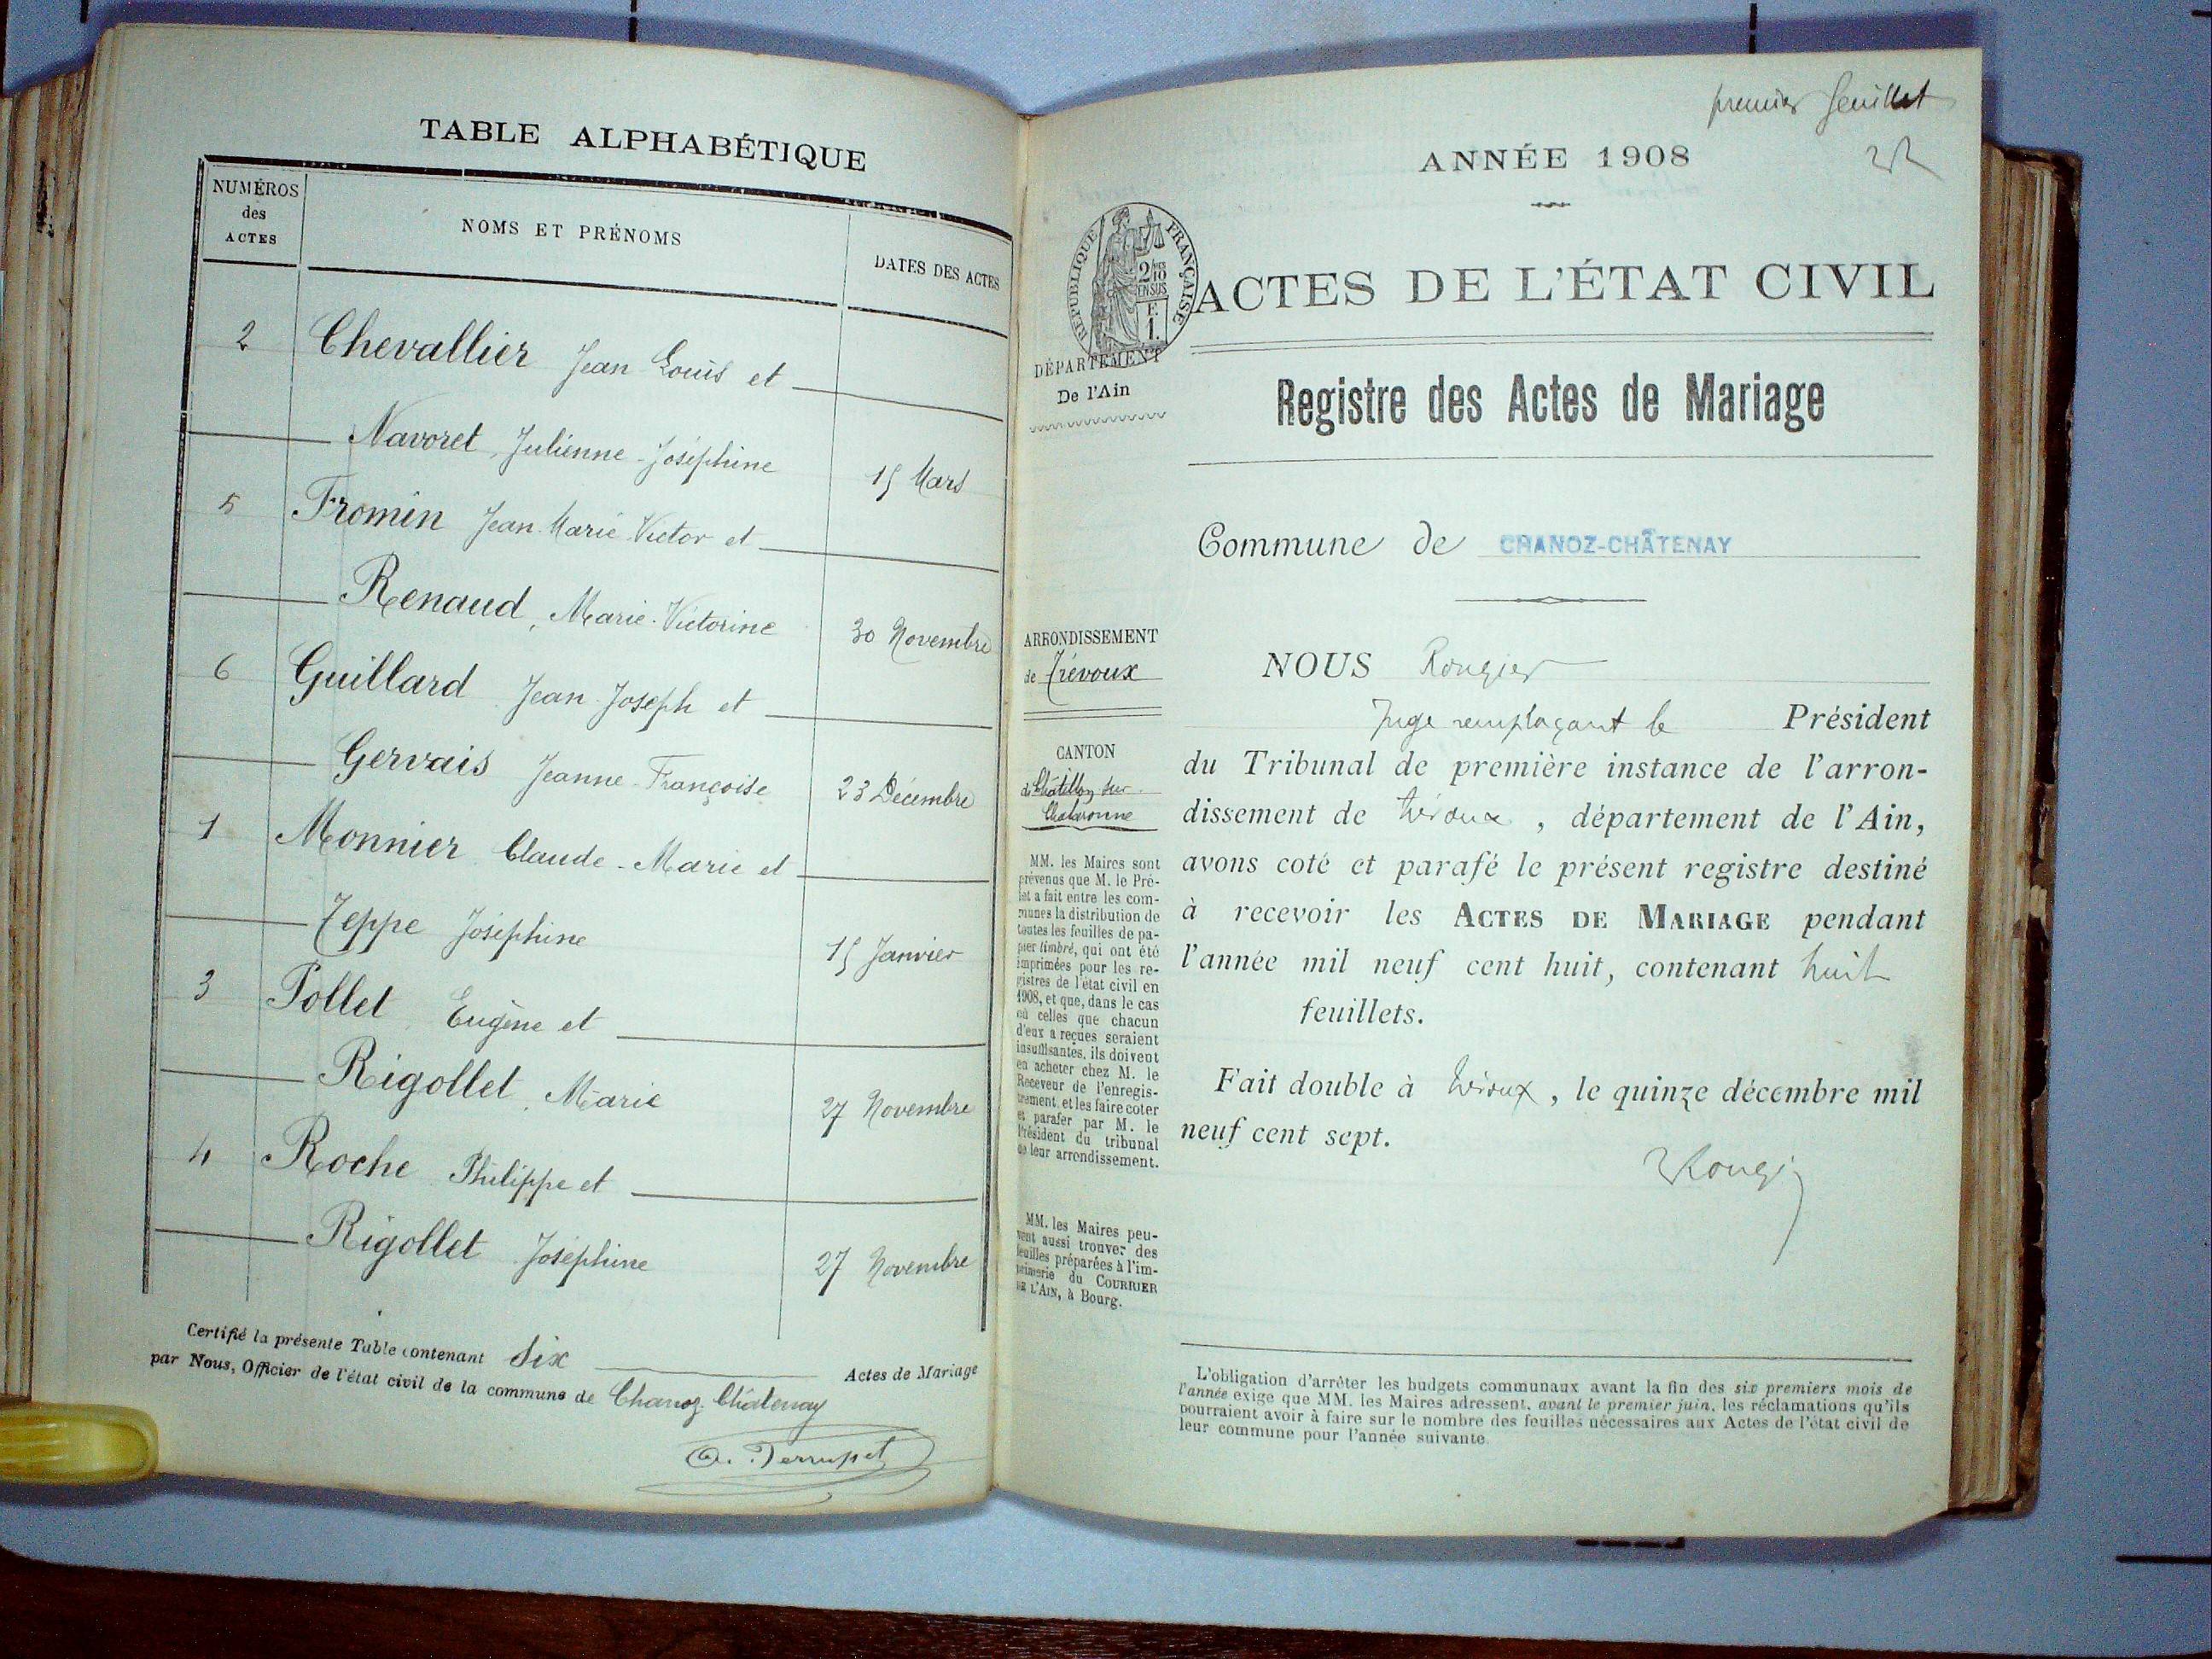 TABLE ALPHABÉTIQUE
NUMÉROS
des
ACTES
NOMS ET PRÉNOMS
DATES DES ACTES
2 Chevallier Jean Louis et
Navoret, Julienne-Joséphine 15 Mars
5 Fromin Jean-Marie-Victor et
Renaud, Marie-Victorine 30 Novembre
6 Guillard Jean-Joseph et
Gervais Jeanne-Françoise 23 Décembre
1 Monnier Claude-Marie et
Teppe Joséphine 15 Janvier
3 Pollet Eugène et
Rigollet, Marie 27 Novembre
4 Roche Philippe et
Rigollet Joséphine 27 Novembre
Certifié la présente Table contenant six Actes de Mariage
par Nous, Officier de l'état civil de la commune de Chanoz-Châtenay
premier feuillet
ANNÉE 1908
RÉPUBLIQUE FRANÇAISE
2/10
EN SUS
F.
1.
ACTES DE L'ÉTAT CIVIL
DÉPARTEMENT
De l'Ain
Registre des Actes de Mariage
Commune de CHANOZ-CHÂTENAY
ARRONDISSEMENT
de Trévoux
CANTON
de Châtillon sur
Chalaronne
MM. les Maires sont
prévenus que M. le Pré-
fet a fait entre les com-
munes la distribution de
toutes les feuilles de pa-
pier timbré, qui ont été
imprimées pour les re-
gistres de l'état civil en
1908, et que, dans le cas
où celles que chacun
d'eux a reçues seraient
insuffisantes, ils doivent
en acheter chez M. le
Receveur de l'enregis-
trement, et les faire coter
et parafer par M. le
Président du tribunal
de leur arrondissement.
MM. les Maires peu-
vent aussi trouver des
feuilles préparées à l'im-
primerie du COURRIER
DE L'AIN, à Bourg.
NOUS Rougier
Juge remplaçant le Président
du Tribunal de première instance de l'arron-
dissement de Trévoux, département de l'Ain,
avons coté et parafé le présent registre destiné
à recevoir les ACTES DE MARIAGE pendant
l'année mil neuf cent huit, contenant huit
feuillets.
Fait double à Trévoux, le quinze décembre mil
neuf cent sept.
L'obligation d'arrêter les budgets communaux avant la fin des six premiers mois de
l'année exige que MM. les Maires adressent, avant le premier juin, les réclamations qu'ils
pourraient avoir à faire sur le nombre des feuilles nécessaires aux Actes de l'état civil de
leur commune pour l'année suivante.